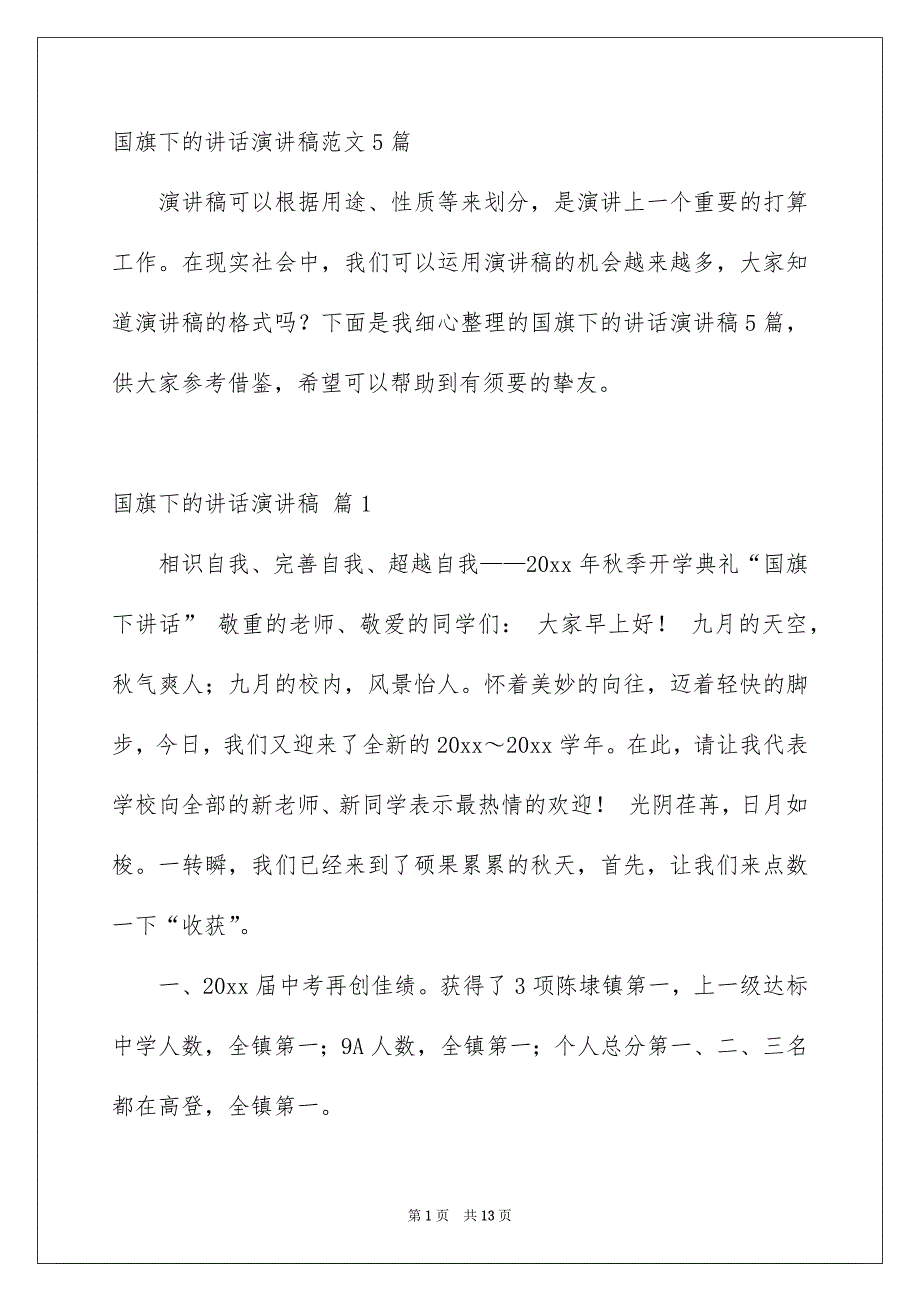 国旗下的讲话演讲稿范文 5 篇
演讲稿可以根据用途、性质等来划分，是演讲上一个重要的打算
工作。在现实社会中，我们可以运用演讲稿的机会越来越多，大家知
道演讲稿的格式吗？下面是我细心整理的国旗下的讲话演讲稿 5 篇，
供大家参考借鉴，希望可以帮助到有须要的挚友。
国旗下的讲话演讲稿 篇 1
相识自我、完善自我、超越自我——20xx 年秋季开学典礼“国旗
下讲话” 敬重的老师、敬爱的同学们： 大家早上好！ 九月的天空，
秋气爽人；九月的校内，风景怡人。怀着美妙的向往，迈着轻快的脚
步，今日，我们又迎来了全新的 20xx～20xx 学年。在此，请让我代表
学校向全部的新老师、新同学表示最热情的欢迎！ 光阴荏苒，日月如
梭。一转瞬，我们已经来到了硕果累累的秋天，首先，让我们来点数
一下“收获”。
一、20xx 届中考再创佳绩。获得了 3 项陈埭镇第一，上一级达标
中学人数，全镇第一；9A 人数，全镇第一；个人总分第一、二、三名
都在高登，全镇第一。
第 1 页 共 13 页